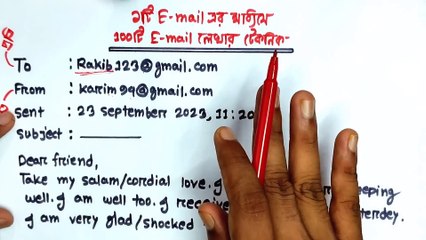 ১টি E-mail এর মাধ্যমে
১০০টি E-mail লেখার টেকনিক
To : Rakib123@gmail.com
From : karim99@gmail.com
Sent : 23 september 2023, 11:20
Subject :
Dear friend,
Take my salam/cordial love. I eeping
well. I am well too. I receive yesterdey.
I am very glad/shocked